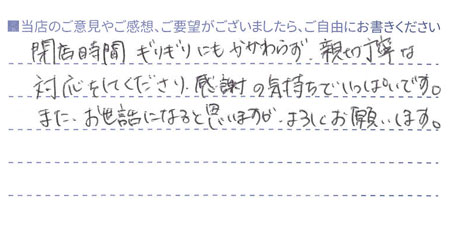 ■当店のご意見やご感想、ご要望がございましたら、ご自由にお書きください
閉店時間ギリギリにもかかわらず、親切丁寧な
対応をしてくださり、感謝の気持ちでいっぱいです。
また、お世話になると思いますが、よろしくお願いします。